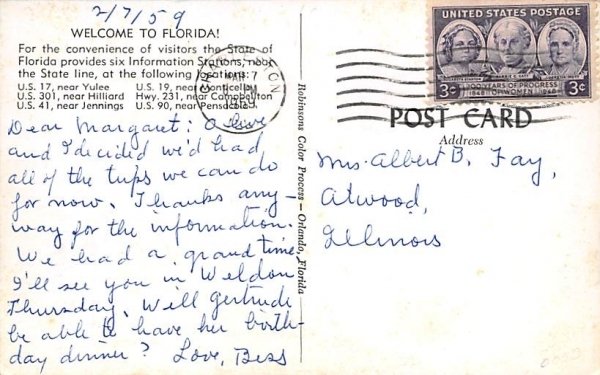 2/7/59
WELCOME TO FLORIDA!
For the convenience of visitors the State of
Florida provides six Information Stations, near
the State line, at the following locations:
U.S. 17, near Yulee U.S. 19, near Monticello
U.S. 301, near Hilliard Hwy. 231, near Campbellton
U.S. 41, near Jennings U.S. 90, near Pensacola
Dear Margaret: Olive
and I decided we'd had
all of the trips we can do
for now. Thanks any-
way for the information.
We had a grand time.
I'll see you in Weldon
Thursday. Will Gertrude
be able to have her birth-
day dinner? Love, Bess
Robinsons Color Process — Orlando, Florida
UNITED STATES POSTAGE
3¢ 100 YEARS OF PROGRESS 3¢
1848 OF WOMEN 1948
POST CARD
Address
Mrs. Albert B. Fay,
Atwood,
Illinois